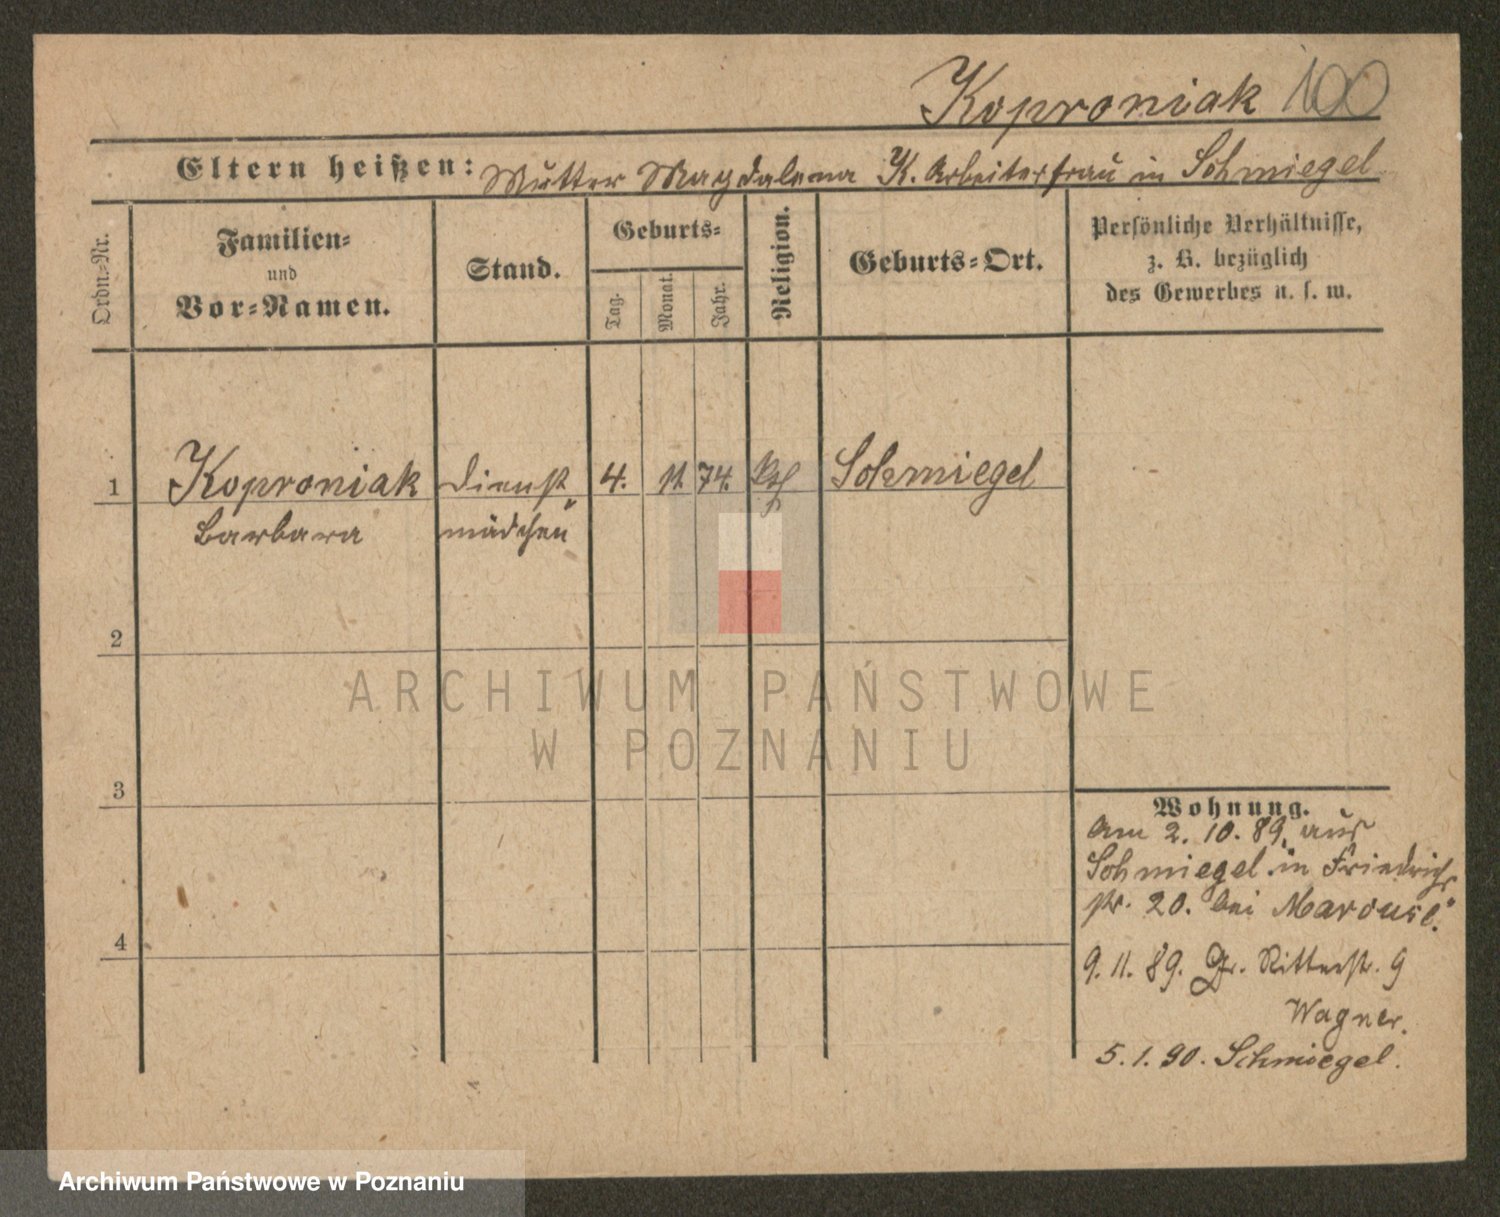 Koproniak 100
Eltern heißen: Mutter Magdalena K. Arbeiterfrau in Schmiegel
Ordn.-Nr.
Familien-
und
Vor-Namen.
Stand.
Geburts-
Tag.
Monat.
Jahr.
Religion.
Geburts-Ort.
Persönliche Verhältnisse,
z. B. bezüglich
des Gewerbes u. s. w.
1 Koproniak Dienst 4. 11. 74. kath Schmiegel
Barbara mädchen
2
3
4
Wohnung.
Am 2. 10. 89. aus
Schmiegel in Friedrich
str. 20. bei
9. 11. 89. Gr. Ritterstr. 9
Wagner.
5. 1. 90. Schmiegel.
ARCHIWUM PAŃSTWOWE
W POZNANIU
Archiwum Państwowe w Poznaniu